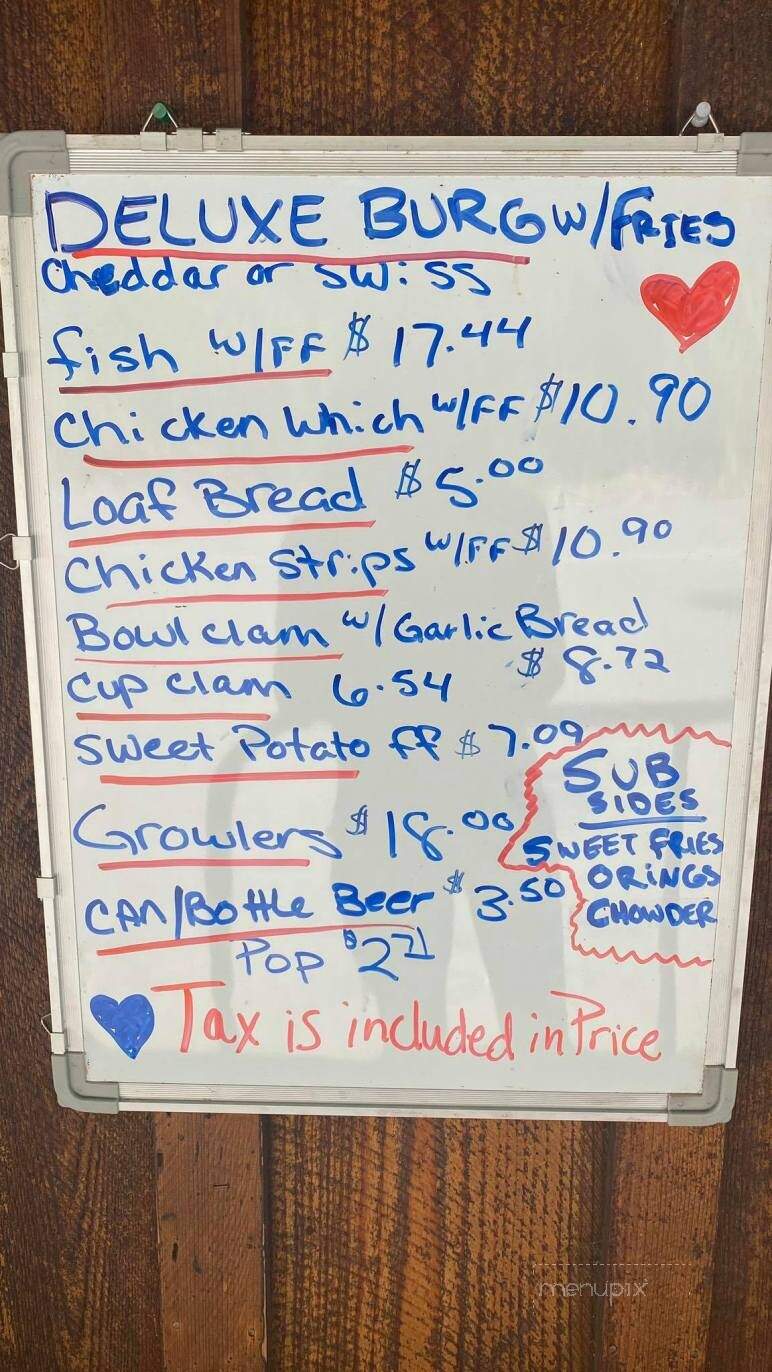 DELUXE BURG W/FRIES
Cheddar or Swiss
fish W/FF $ 17.44
Chicken Which W/FF $10.90
Loaf Bread $ 5.00
Chicken Strips W/FF $ 10.90
Bowl clam w/ Garlic Bread
$ 8.72
Cup Clam 6.54
Sweet Potato ff $ 7.09
SUB
SIDES
SWEET FRIES
ORINGS
CHOWDER
Growlers $ 18.00
CAN/Bottle Beer $ 3.50
Pop $2.71
Tax is included in Price
menupix